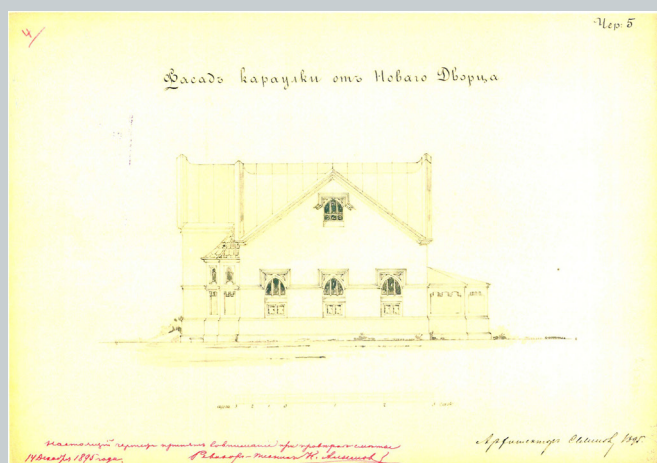 4/
Чер. 5
Фасадъ караулки отъ Новаго Дворца
Настоящій чертежъ принятъ во вниманіе при проверке сметы
14 Декабря 1895 года.
Архитекторъ 1895